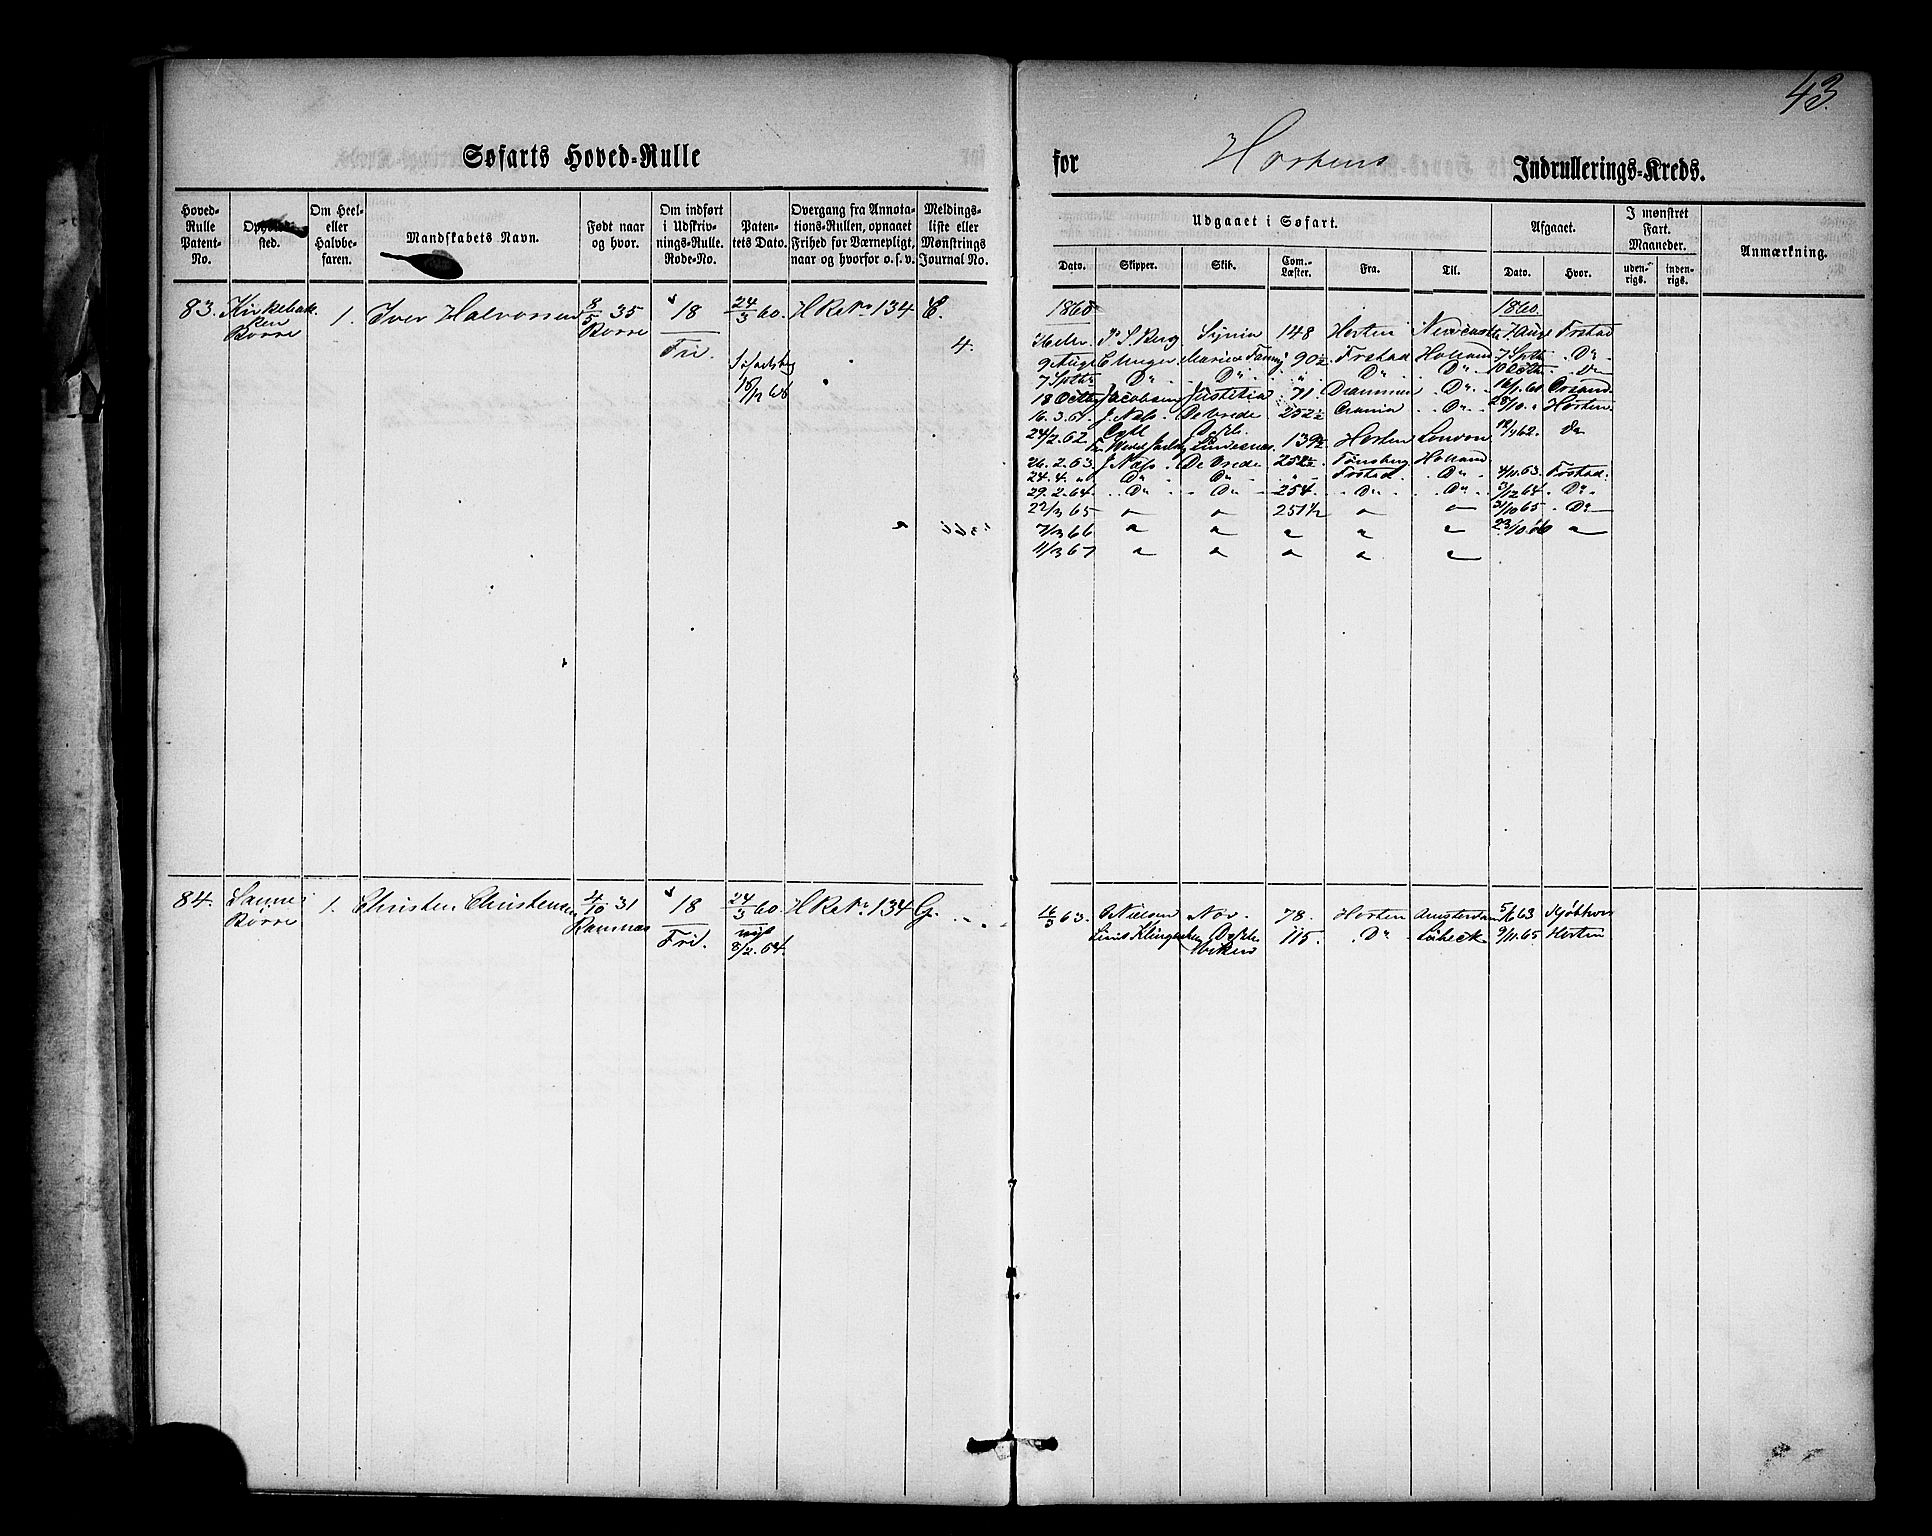 43.
Søfarts Hoved-Rulle for Hortens Indrullerings-Kreds.
Hoved-Rulle Patent-No.
sted.
Om Heel- eller Halvbefaren.
Mandskabets Navn.
Født naar og hvor.
Om indført i Udskrivnings-Rulle. Rode-No.
Patentets Dato.
Overgang fra Annotations-Rullen, opnaaet Frihed for Værnepligt, naar og hvorfor o. s. v.
Meldingsliste eller Mønstrings Journal No.
Udgaaet i Søfart.
Dato. Skipper. Skib. Com.-Læster. Fra. Til.
Afgaaet.
Dato. Hvor.
I mønstret Fart. Maaneder.
udenrigs. indenrigs.
Anmærkning.
83. Kirkebak 1. Iver Halvorsen 8/5 35 18 24/3 60. H R No 134 C.
ken
Borre Borre Fri. 4.
1860 1860.
J. S. Berg 148 Horten Newcastle 7 Aug Frstad
9 Aug C Unger Marie & Fanny 90½ Frstad Holland 7 Spthr Do
7 Spthr Do Do " Do Do 10 Octbr Do
18 Octbr Jacobsen Justitia 71. Drammen Do 16/1 61
16. 3. 61 J. Næss De Vrede 252½ Do 28/10 " Horten
24/2. 62 139½ Horten London 12/ 62. do
26. 2. 63. J. Næss. De Vrede 252½ Tønsberg Holland
24. 4. " Do Do " Frstad. Do 4/11. 63. Frstad.
29. 2. 64. Do Do 254. Do Do 3/12 64. Do
22/3 65 " " 251½ " " 31/10 65. Do
7/3 66 " " " " " 23/10 66 "
11/3 67 " " " " "
84. 1. Christen Christensen 4/10 31 18 24/3 60. H R No 134 G.
Borre Ramnes Fri. nyt
8/2. 64.
16/3 63. Nielsen Nor. 78. Horten Amsterdam 5/6 63 Kjøbhvn
Klingenberg 115. Do Lübeck 9/11. 65 Horten